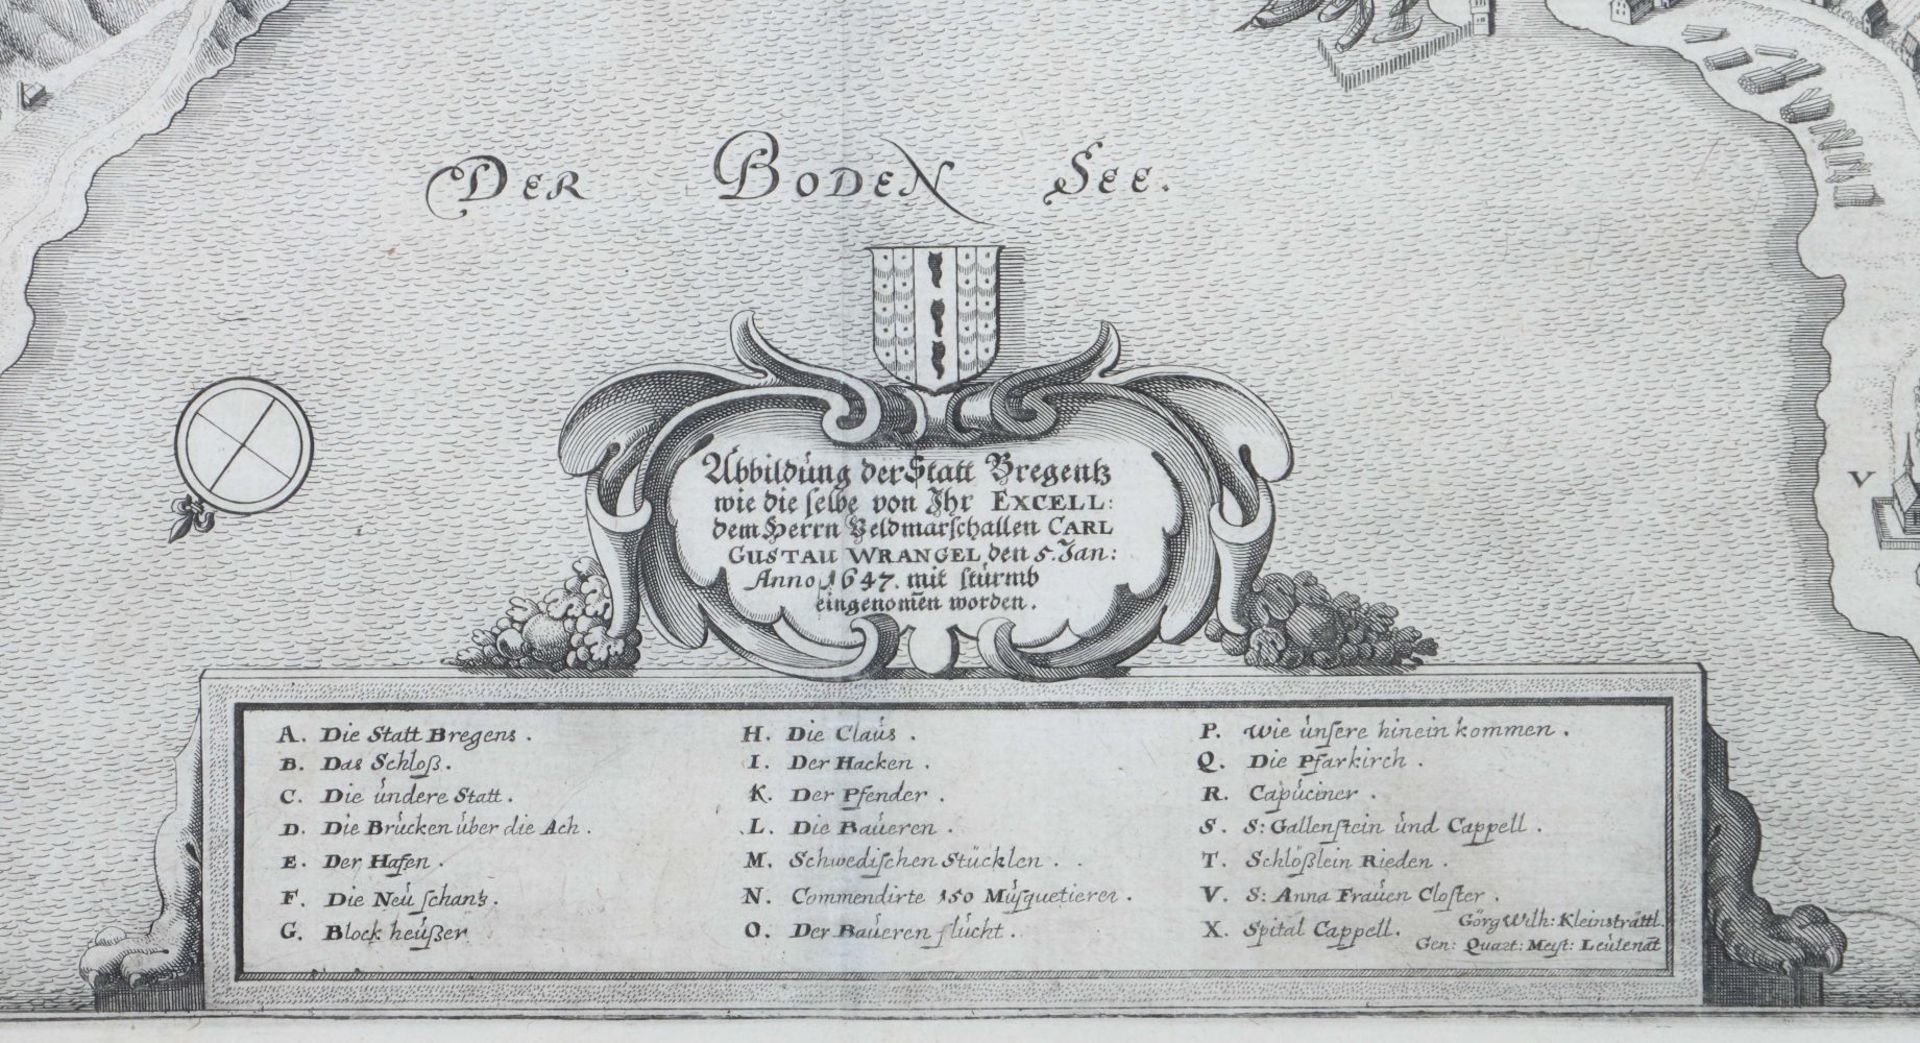 DER BODEN SEE.
Abbildúng der Statt Bregentz
wie die selbe von Ihr EXCELL:
dem Herrn Veldmarschallen CARL
GUSTAU WRANGEL den 5. Jan:
Anno 1647. mit stúrmb
eingenom̄en worden.
A. Die Statt Bregens.
B. Das Schloß.
C. Die úndere Statt.
D. Die Brúcken úber die Ach.
E. Der Hafen.
F. Die Neú schantz.
G. Block heúßer
H. Die Claús.
I. Der Hacken.
K. Der Pfender.
L. Die Baúeren.
M. Schwedischen Stúcklen.
N. Commendirte 150 Músquetierer.
O. Der Baúeren flúcht.
P. Wie únsere hinein kommen.
Q. Die Pfarkirch.
R. Capúciner.
S. S: Gallenstein únd Cappell.
T. Schlößlein Rieden.
V. S: Anna Fraúen Closter.
X. Spital Cappell.
Görg Wilh: Kleinsträttl.
Gen: Quart: Meist: Leútenāt
V